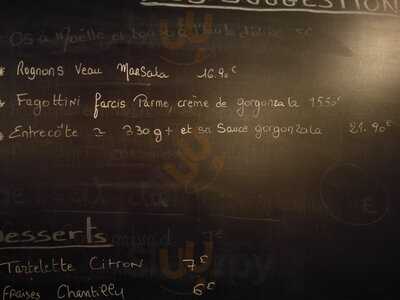 SUGGESTION
Os à Moëlle
* Rognons Veau Marsala 16.90€
* Fagottini farcis Parme, crème de gorgonzola 15.50€
* Entrecôte ≃ 330g+ et sa Sauce gorgonzola 21.90€
Desserts
Tartelette Citron 7€
Fraises Chantilly 6€